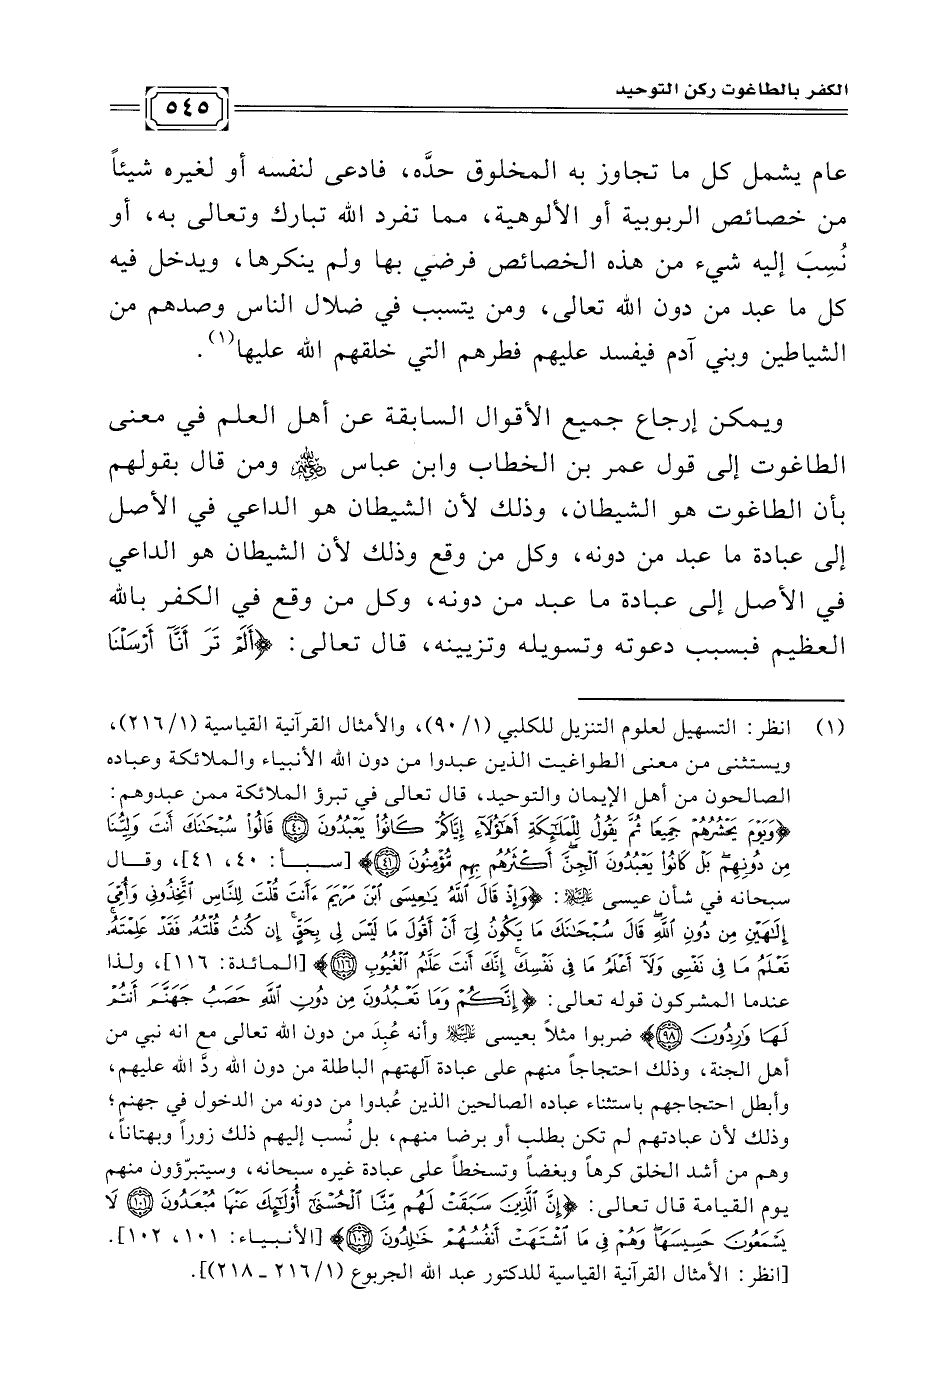 الكفر بالطاغوت ركن التوحيد
٥٤٥
عام يشمل كل ما تجاوز به المخلوق حدَّه، فادعى لنفسه أو لغيره شيئاً
من خصائص الربوبية أو الألوهية، مما تفرد الله تبارك وتعالى به، أو
نُسِبَ إليه شيء من هذه الخصائص فرضي بها ولم ينكرها، ويدخل فيه
كل ما عبد من دون الله تعالى، ومن يتسبب في ضلال الناس وصدهم من
الشياطين وبني آدم فيفسد عليهم فطرهم التي خلقهم الله عليها(١).
ويمكن إرجاع جميع الأقوال السابقة عن أهل العلم في معنى
الطاغوت إلى قول عمر بن الخطاب وابن عباس ومن قال بقولهم
بأن الطاغوت هو الشيطان، وذلك لأن الشيطان هو الداعي في الأصل
إلى عبادة ما عبد من دونه، وكل من وقع وذلك لأن الشيطان هو الداعي
في الأصل إلى عبادة ما عبد من دونه، وكل من وقع في الكفر بالله
العظيم فبسبب دعوته وتسويله وتزيينه، قال تعالى: ﴿أَلَمْ تَرَ أَنَّآ أَرْسَلْنَا
(١) انظر: التسهيل لعلوم التنزيل للكلبي (٩٠/١)، والأمثال القرآنية القياسية (٢١٦/١)،
ويستثنى من معنى الطواغيت الذين عبدوا من دون الله الأنبياء والملائكة وعباده
الصالحون من أهل الإيمان والتوحيد، قال تعالى في تبرؤ الملائكة ممن عبدوهم:
﴿وَيَوْمَ يَحْشُرُهُمْ جَمِيعًا ثُمَّ يَقُولُ لِلْمَلَٰٓئِكَةِ أَهَٰٓؤُلَآءِ إِيَّاكُمْ كَانُوا۟ يَعْبُدُونَ ﴿٤٠﴾ قَالُوا۟ سُبْحَٰنَكَ أَنتَ وَلِيُّنَا
مِن دُونِهِم بَلْ كَانُوا۟ يَعْبُدُونَ ٱلْجِنَّ أَكْثَرُهُم بِهِم مُّؤْمِنُونَ ﴿٤١﴾﴾ [سبأ: ٤٠، ٤١]، وقال
سبحانه في شأن عيسى عليه السلام: ﴿وَإِذْ قَالَ ٱللَّهُ يَٰعِيسَى ٱبْنَ مَرْيَمَ ءَأَنتَ قُلْتَ لِلنَّاسِ ٱتَّخِذُونِى وَأُمِّىَ
إِلَٰهَيْنِ مِن دُونِ ٱللَّهِ قَالَ سُبْحَٰنَكَ مَا يَكُونُ لِىٓ أَنْ أَقُولَ مَا لَيْسَ لِى بِحَقٍّ إِن كُنتُ قُلْتُهُۥ فَقَدْ عَلِمْتَهُۥ
تَعْلَمُ مَا فِى نَفْسِى وَلَآ أَعْلَمُ مَا فِى نَفْسِكَ إِنَّكَ أَنتَ عَلَّٰمُ ٱلْغُيُوبِ ﴿١١٦﴾﴾ [المائدة: ١١٦]، ولذا
عندما المشركون قوله تعالى: ﴿إِنَّكُمْ وَمَا تَعْبُدُونَ مِن دُونِ ٱللَّهِ حَصَبُ جَهَنَّمَ أَنتُمْ
لَهَا وَٰرِدُونَ ﴿٩٨﴾﴾ ضربوا مثلاً بعيسى عليه السلام وأنه عُبِدَ من دون الله تعالى مع انه نبي من
أهل الجنة، وذلك احتجاجاً منهم على عبادة آلهتهم الباطلة من دون الله ردَّ الله عليهم،
وأبطل احتجاجهم باستثناء عباده الصالحين الذين عُبدوا من دونه من الدخول في جهنم؛
وذلك لأن عبادتهم لم تكن بطلب أو برضا منهم، بل نُسب إليهم ذلك زوراً وبهتاناً،
وهم من أشد الخلق كرهاً وبغضاً وتسخطاً على عبادة غيره سبحانه، وسيتبرّؤون منهم
يوم القيامة قال تعالى: ﴿إِنَّ ٱلَّذِينَ سَبَقَتْ لَهُم مِّنَّا ٱلْحُسْنَىٰٓ أُو۟لَٰٓئِكَ عَنْهَا مُبْعَدُونَ ﴿١٠١﴾ لَا
يَسْمَعُونَ حَسِيسَهَا وَهُمْ فِى مَا ٱشْتَهَتْ أَنفُسُهُمْ خَٰلِدُونَ ﴿١٠٢﴾﴾ [الأنبياء: ١٠١، ١٠٢].
[انظر: الأمثال القرآنية القياسية للدكتور عبد الله الجربوع (٢١٦/١ ـ ٢١٨)].